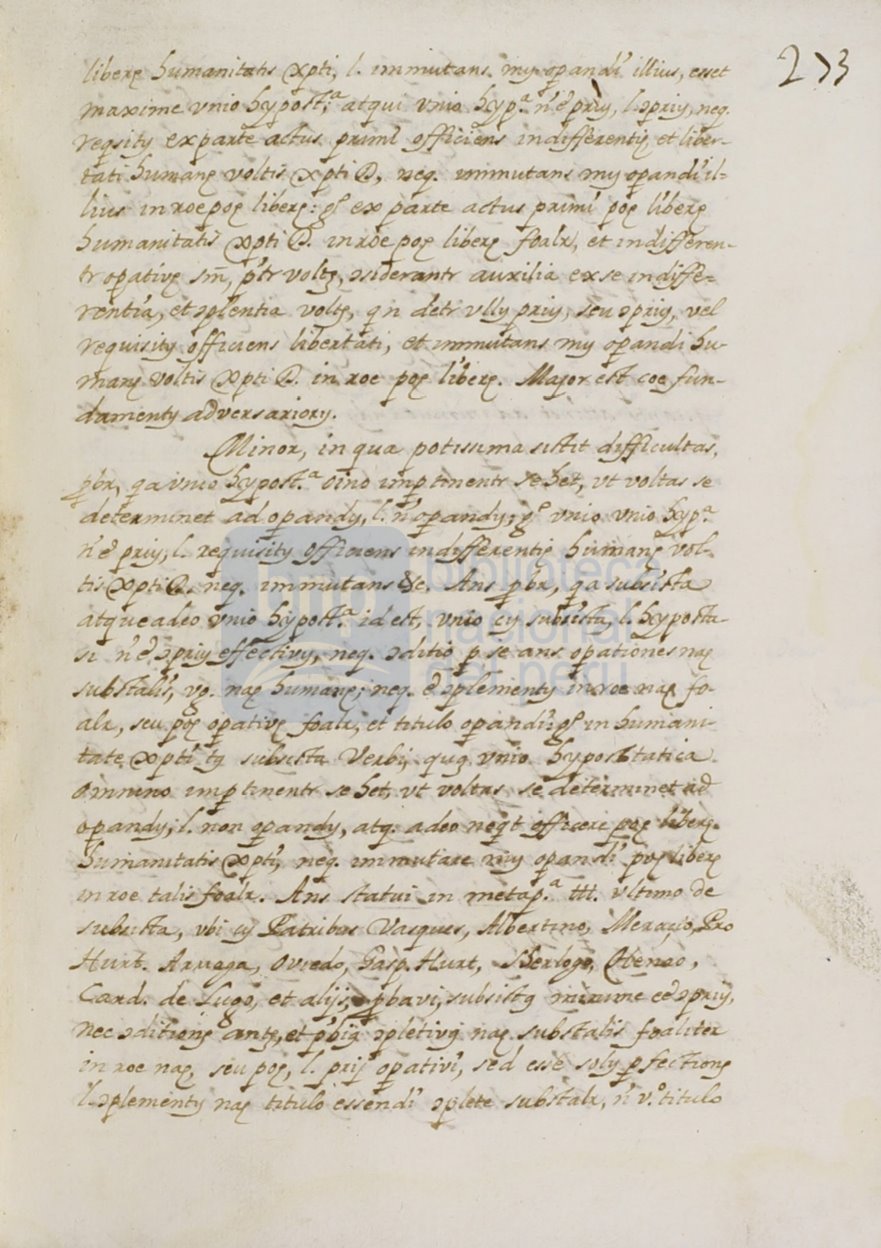 273
liberę humanitatis Xpti, l. immutans my opandi illius, esset
maxime vnio hypost.ª atqui vnio hyp.ª n' ē priy, l. ɔpriy, neq.
reqsity ex parte actus primi officiens indifferentię et liber-
tati humanę voltis Xpti D, neq. immutans my opandi il-
lius in roe poę liberę: gº ex parte actus primi poę liberę
humanitatis Xpti D. in roe poę liberę foalr, et indifferen-
tr opativę sm, ptr voltę, ɔsiderantr auxilia ex se indiffe-
rentia, et ɔplentia voltę, qn detr vlly priy, seu ɔpriy, vel
requisity officiens libertati, et immutans my opandi hu-
manę voltis Xpti D. in roe poę liberę. Major est coe fun-
damenty adversariory.
Minor, in qua potissima sistit difficultas,
pbr, qa vnio hypost.ª oino imptinentr se het, vt voltas se
determinet ad opandy, l. n' opandy; gº vnio vnio hyp.ª
n' ē priy, l. requisity officiens indifferentię humanę vol-
tis Xpti D. neq. immutans &c. Ans pbr, qa subsista
atque adeo vnio hypost.ª id est, vnio cy subsista, l. hyposta-
si n' ē ɔpriy effectivy, neq. ɔditio p se ans opationes naę
substalis, vg. naę humanę; neq. ē ɔplementy in roe naę fo-
alr, seu poę opativę foalr, et titulo opandi: gº in humani-
tate Xpti tę subsista Verbi, quą vnio hypostatica
omnino imptinentr se het, vt voltas se determinet ad
opandy, l. non opandy, atq. adeo neqt officere poę liberę
humanitatis Xpti, neq. immutare my opandi poę liberę
in roe talis foalr. Ans statui in metap.ª ttt. vltimo de
subsista, vbi cy Patribus Vasques, Albertino, Meracio, Pro
Hurt. Arriaga, Oviedo, Gasp. Hurt, Sherlogo,
Card. de Lugo, et alijs, pbavi, subsistą minime eē ɔpriy,
nec ɔditionę antę, et pbię ɔpletivą naę substalis foaliter
in roe naę, seu poę, l. prij opativi, sed esse soly pfectionę
l. ɔplementy naę titulo essendi ɔplete substalr, n' v.º titulo
biblioteca
nacional
del perú